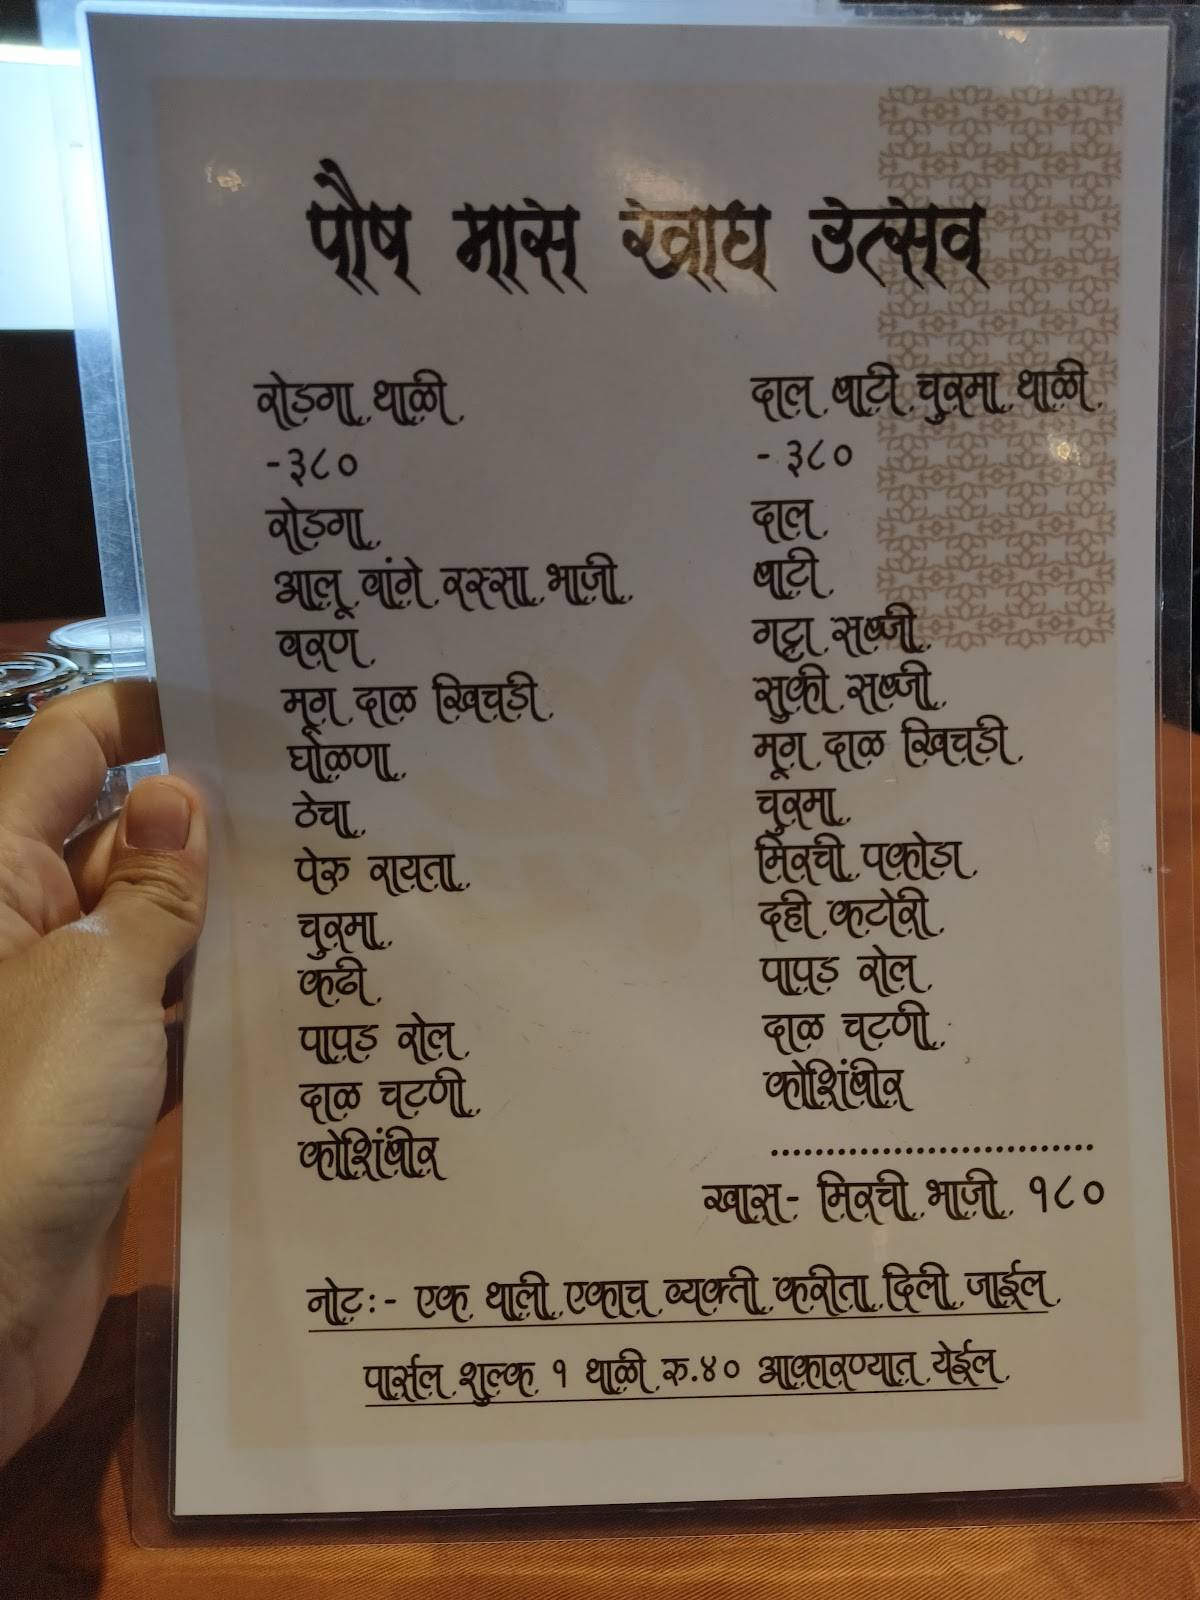 पौष मास खाद्य उत्सव
रोडगा थाळी
-३८०
रोडगा
आलू वांगे रस्सा भाजी
वरण
मूग दाळ खिचडी
घोळणा
ठेचा
पेरु रायता
चुरमा
कढी
पापड रोल
दाळ चटणी
कोशिंबीर
दाल बाटी चुरमा थाळी
- ३८०
दाल
बाटी
गट्टा सब्जी
सुकी सब्जी
मूग दाळ खिचडी
चुरमा
मिरची पकोडा
दही कटोरी
पापड रोल
दाळ चटणी
कोशिंबीर
..............................
खास- मिरची भाजी १८०
नोट:- एक थाली एकाच व्यक्ती करीता दिली जाईल
पार्सल शुल्क १ थाळी रु.४० आकारण्यात येईल